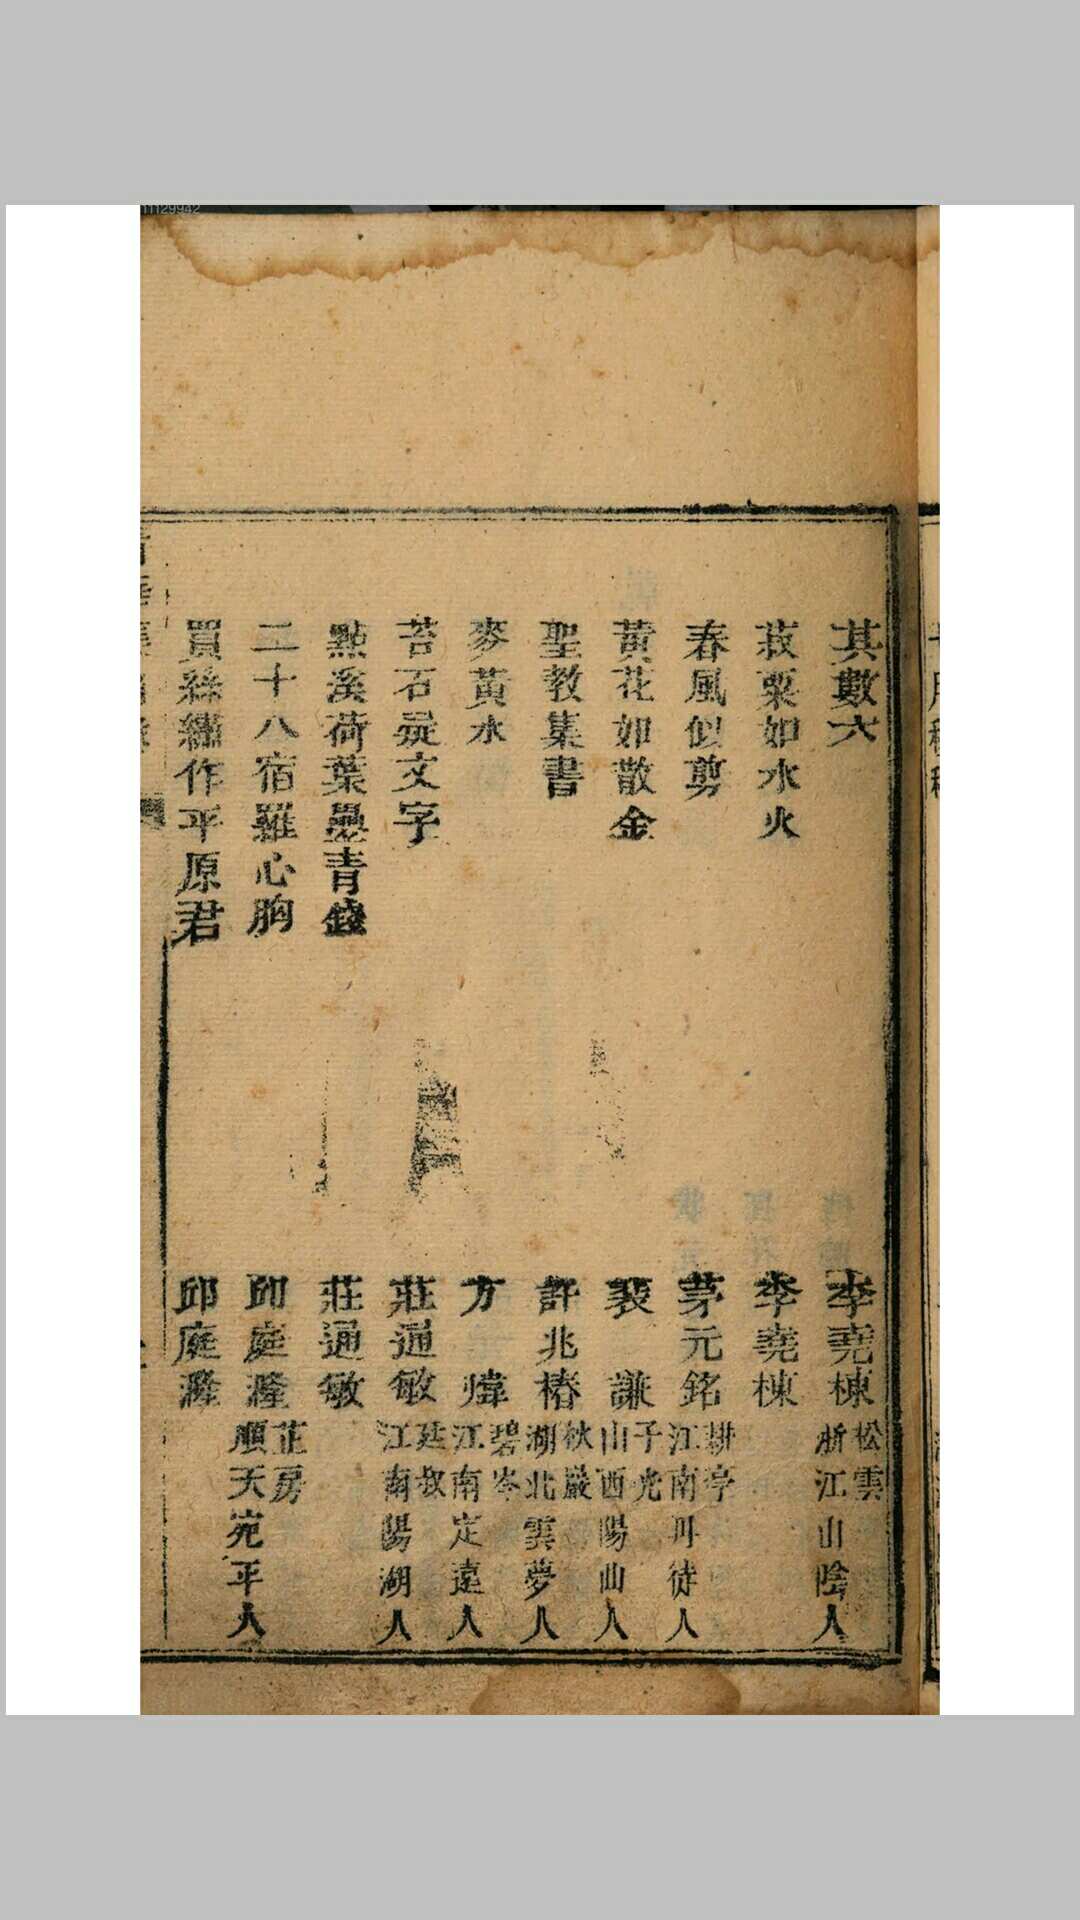 其數六 李堯棟 松雲 浙江山陰人
菽粟如水火 李堯棟
春風似剪 茅元銘 耕亭 江南丹徒人
黃花如散金 裴謙 子光 山西陽曲人
聖教集書 許兆椿 秋巖 湖北雲夢人
麥黃水 方煒 碧岑 江南定遠人
苔石疑文字 莊通敏 廷叔 江南陽湖人
點溪荷葉疊青錢 莊通敏
二十八宿羅心胸 邱庭漋 芷房 順天宛平人
買絲繡作平原君 邱庭漋
11129942